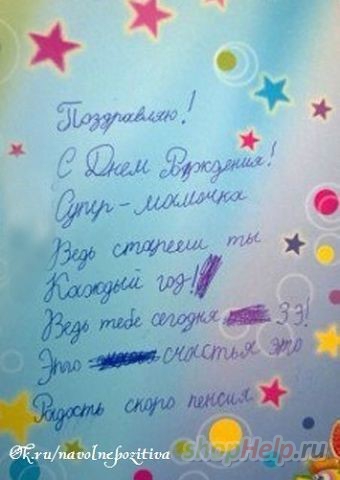 Поздравляю!
С Днем Рождения!
Супер-мамочка
Ведь стареешь ты
Каждый год!
Ведь тебе сегодня 33!
Это счастья это
Радость скоро пенсия
Ok.ru/navolnepozitiva
shopHelp.ru